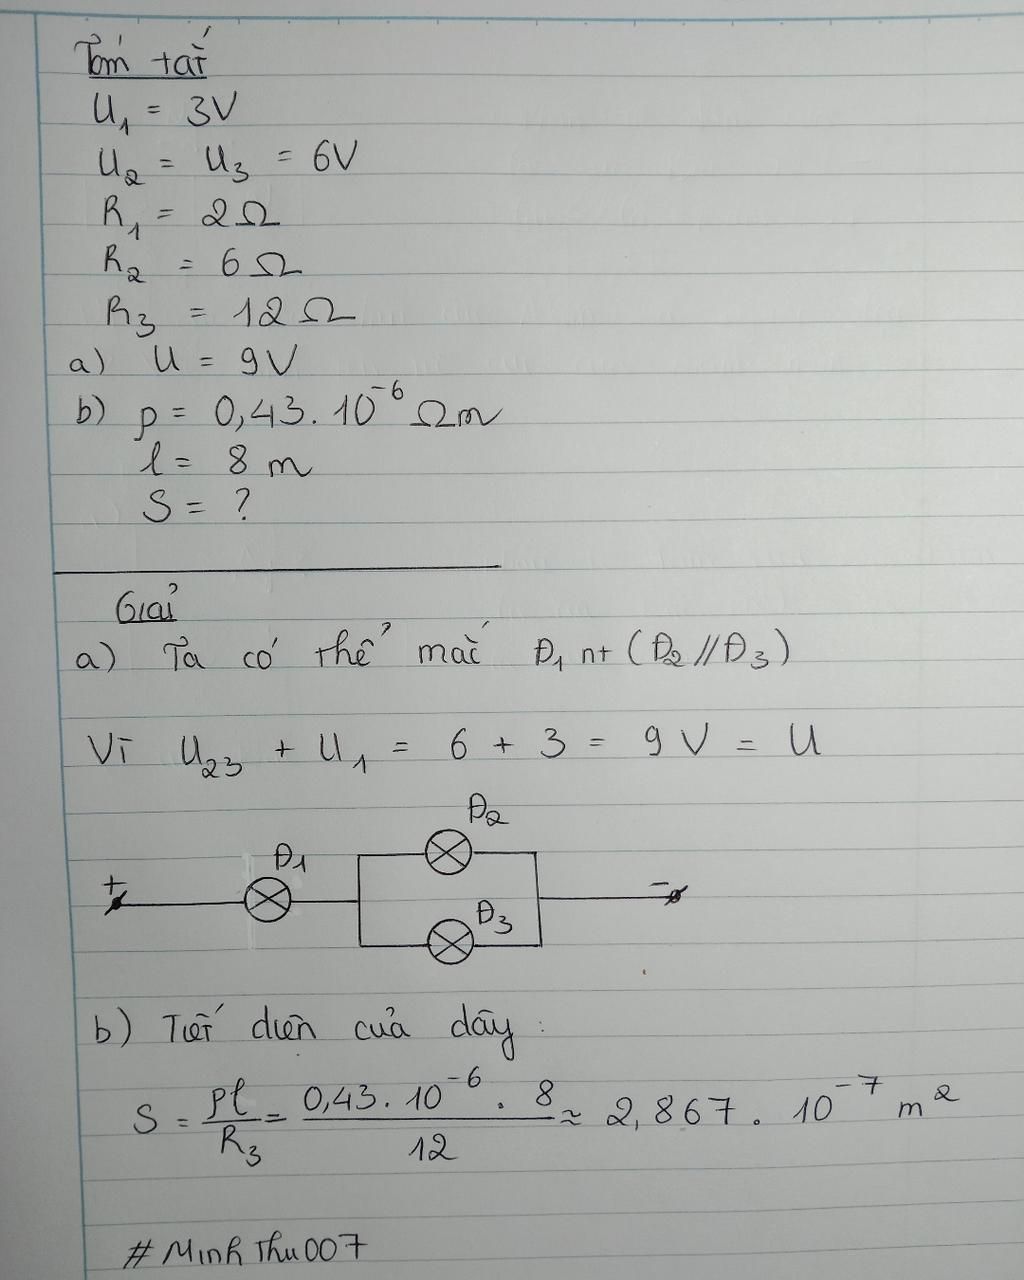 Tóm tắt
U₁ = 3V
U₂ = U₃ = 6V
R₁ = 2Ω
R₂ = 6Ω
R₃ = 12Ω
a) U = 9V
b) ρ = 0,43.10⁻⁶ Ωm
l = 8 m
S = ?
Giải
a) Ta có thể mắc Đ₁ nt (Đ₂//Đ₃)
Vì U₂₃ + U₁ = 6 + 3 = 9V = U
Đ₂
Đ₁
+
-
Đ₃
b) Tiết diện của dây :
S = ρl/R₃ = 0,43.10⁻⁶ . 8/12 ≈ 2,867 . 10⁻⁷ m²
# MinhThu007